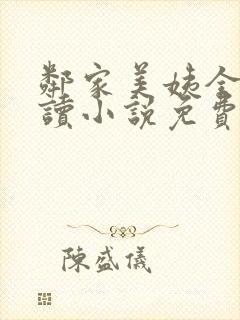 鄰家美姨全
讀小說免費
陳盛儀